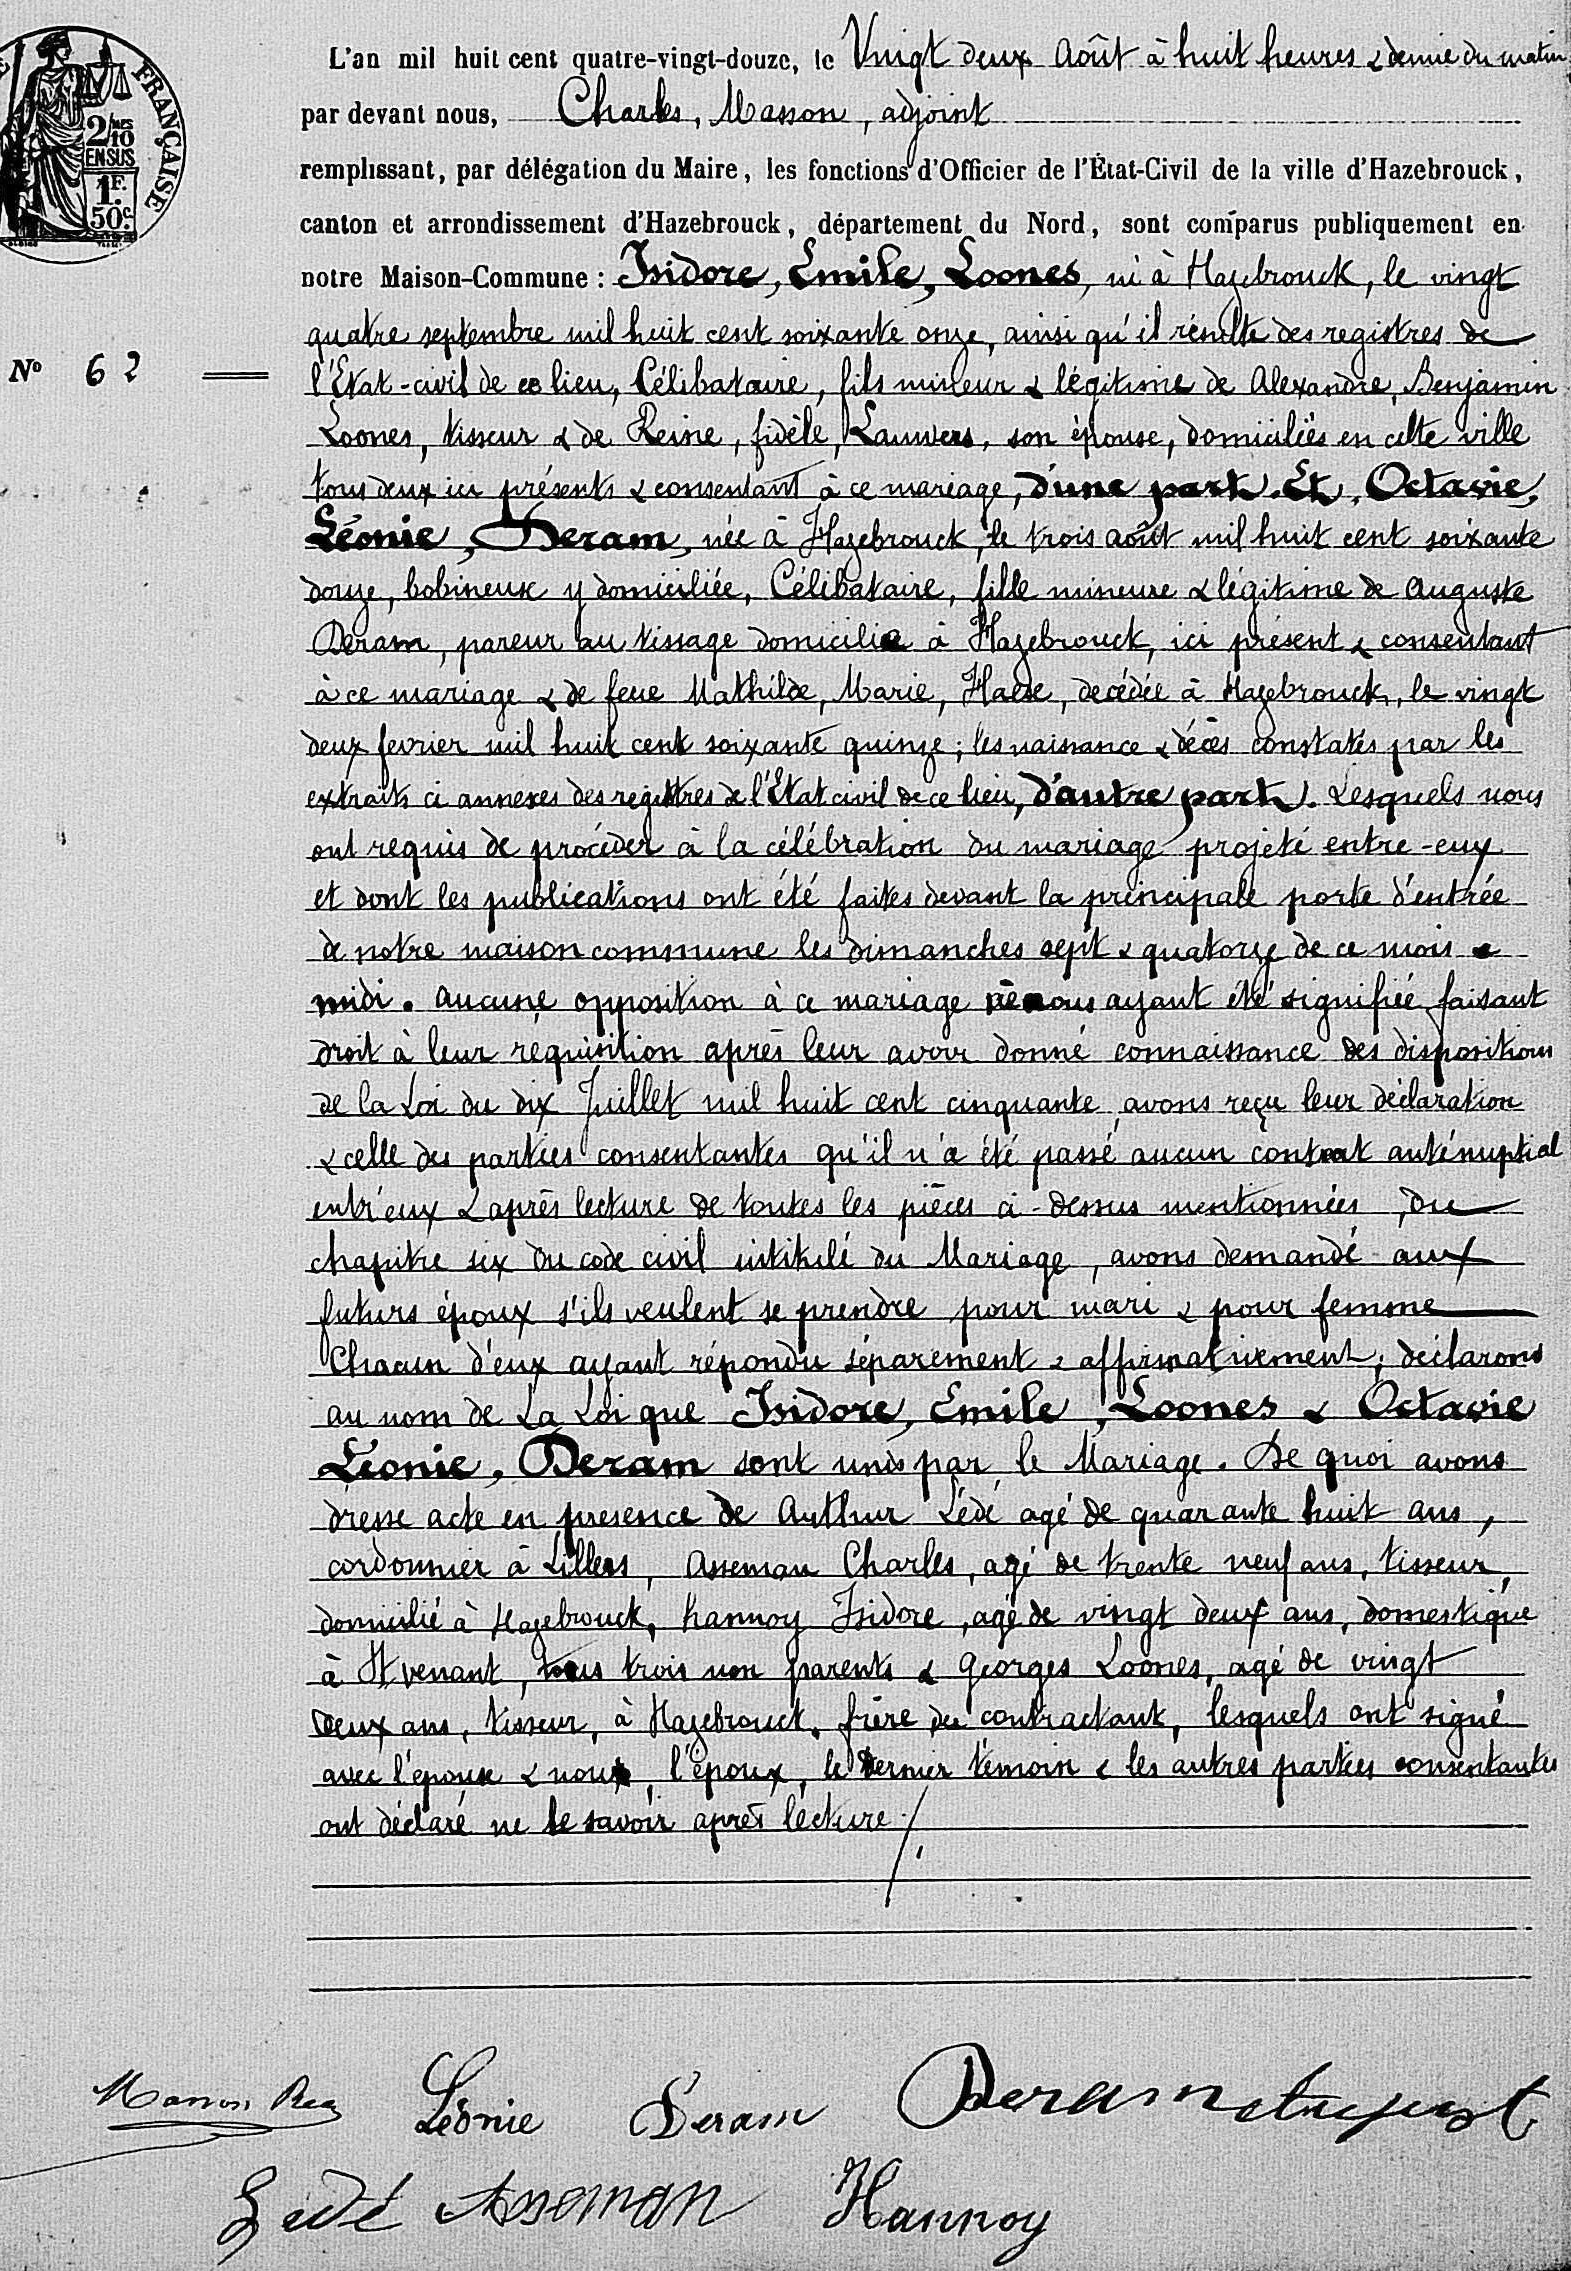 FRANÇAISE
2/10 MES
EN SUS
1F.
50c.
L'an mil huit cent quatre-vingt-douze, le Vingt deux Août à huit heures & demie du matin
par devant nous, Charles, Masson, adjoint
remplissant, par délégation du Maire, les fonctions d'Officier de l'État-Civil de la ville d'Hazebrouck,
canton et arrondissement d'Hazebrouck, département du Nord, sont comparus publiquement en
notre Maison-Commune : Isidore, Emile, Loones, né à Hazebrouck, le vingt
quatre septembre mil huit cent soixante onze, ainsi qu'il résulte des registres de
N° 62
l'Etat-civil de ce lieu, Célibataire, fils mineur & légitime de Alexandre, Benjamin
Loones, tisseur & de Reine, fidèle, Lauwers, son épouse, domiciliés en cette ville
tous deux ici présents & consentant à ce mariage, d'une part. Et, Octavie,
Léonie, Deram, née à Hazebrouck, le trois août mil huit cent soixante
douze, bobineuse y domiciliée, Célibataire, fille mineure & légitime de Auguste
Deram, pareur au tissage domicilié à Hazebrouck, ici présent & consentant
à ce mariage & de feue Mathilde, Marie, decédée à Hazebrouck, le vingt
deux fevrier mil huit cent soixante quinze ; les naissance & décès constatés par les
extraits ci annexes des registres de l'Etat civil de ce lieu, d'autre part. Lesquels nous
ont requis de procéder à la célébration du mariage projeté entre-eux
et dont les publications ont été faites devant la principale porte d'entrée
de notre maison commune les dimanches sept & quatorze de ce mois a
midi. aucune opposition à ce mariage ne nous ayant été signifiée faisant
droit à leur réquisition après leur avoir donné connaissance des dispositions
de la Loi du dix Juillet mil huit cent cinquante, avons reçu leur déclaration
& celle des parties consentantes qu'il n'a été passé aucun contrat anténuptial
entr'eux & après lecture de toutes les pièces ci-dessus mentionnées, du
chapitre six du code civil intitulé du Mariage, avons demandé aux
futurs époux s'ils veulent se prendre pour mari & pour femme
Chacun d'eux ayant répondu séparement & affirmativement, déclarons
au nom de La Loi que Isidore, Emile, Loones & Octavie
Léonie, Deram sont unis par le Mariage. De quoi avons
dresse acte en presence de Arthur Lédé agé de quarante huit ans,
cordonnier à Lillers, Asseman Charles, agé de trente neuf ans, tisseur,
domicilié à Hazebrouck, hannoy Isidore, agé de vingt deux ans, domestique
à St venant, tous trois non parents & Georges Loones, agé de vingt
deux ans, tisseur, à Hazebrouck, frère du contractant, lesquels ont signé
avec l'épouse & nous, l'époux, le dernier témoin & les autres parties consentantes
ont déclaré ne le savoir après lécture ./.
Masson Léonie Deram Deram
Lédé Asseman Hannoy